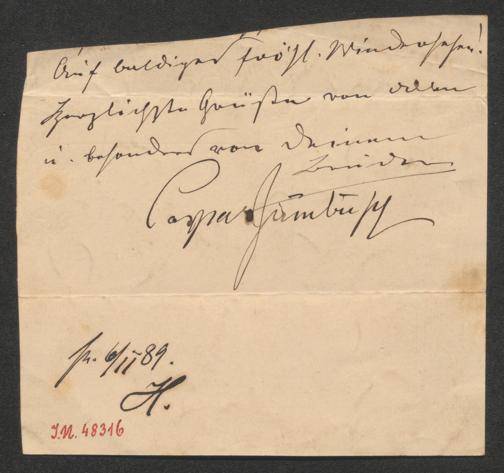 Auf baldiges fröhl. Wiedersehen!
Herzlichste Grüße von allen
u. besonders von Deinem
Bruder
Caspar Zumbusch
pr. 6/II 89.
H.
I.N. 48316